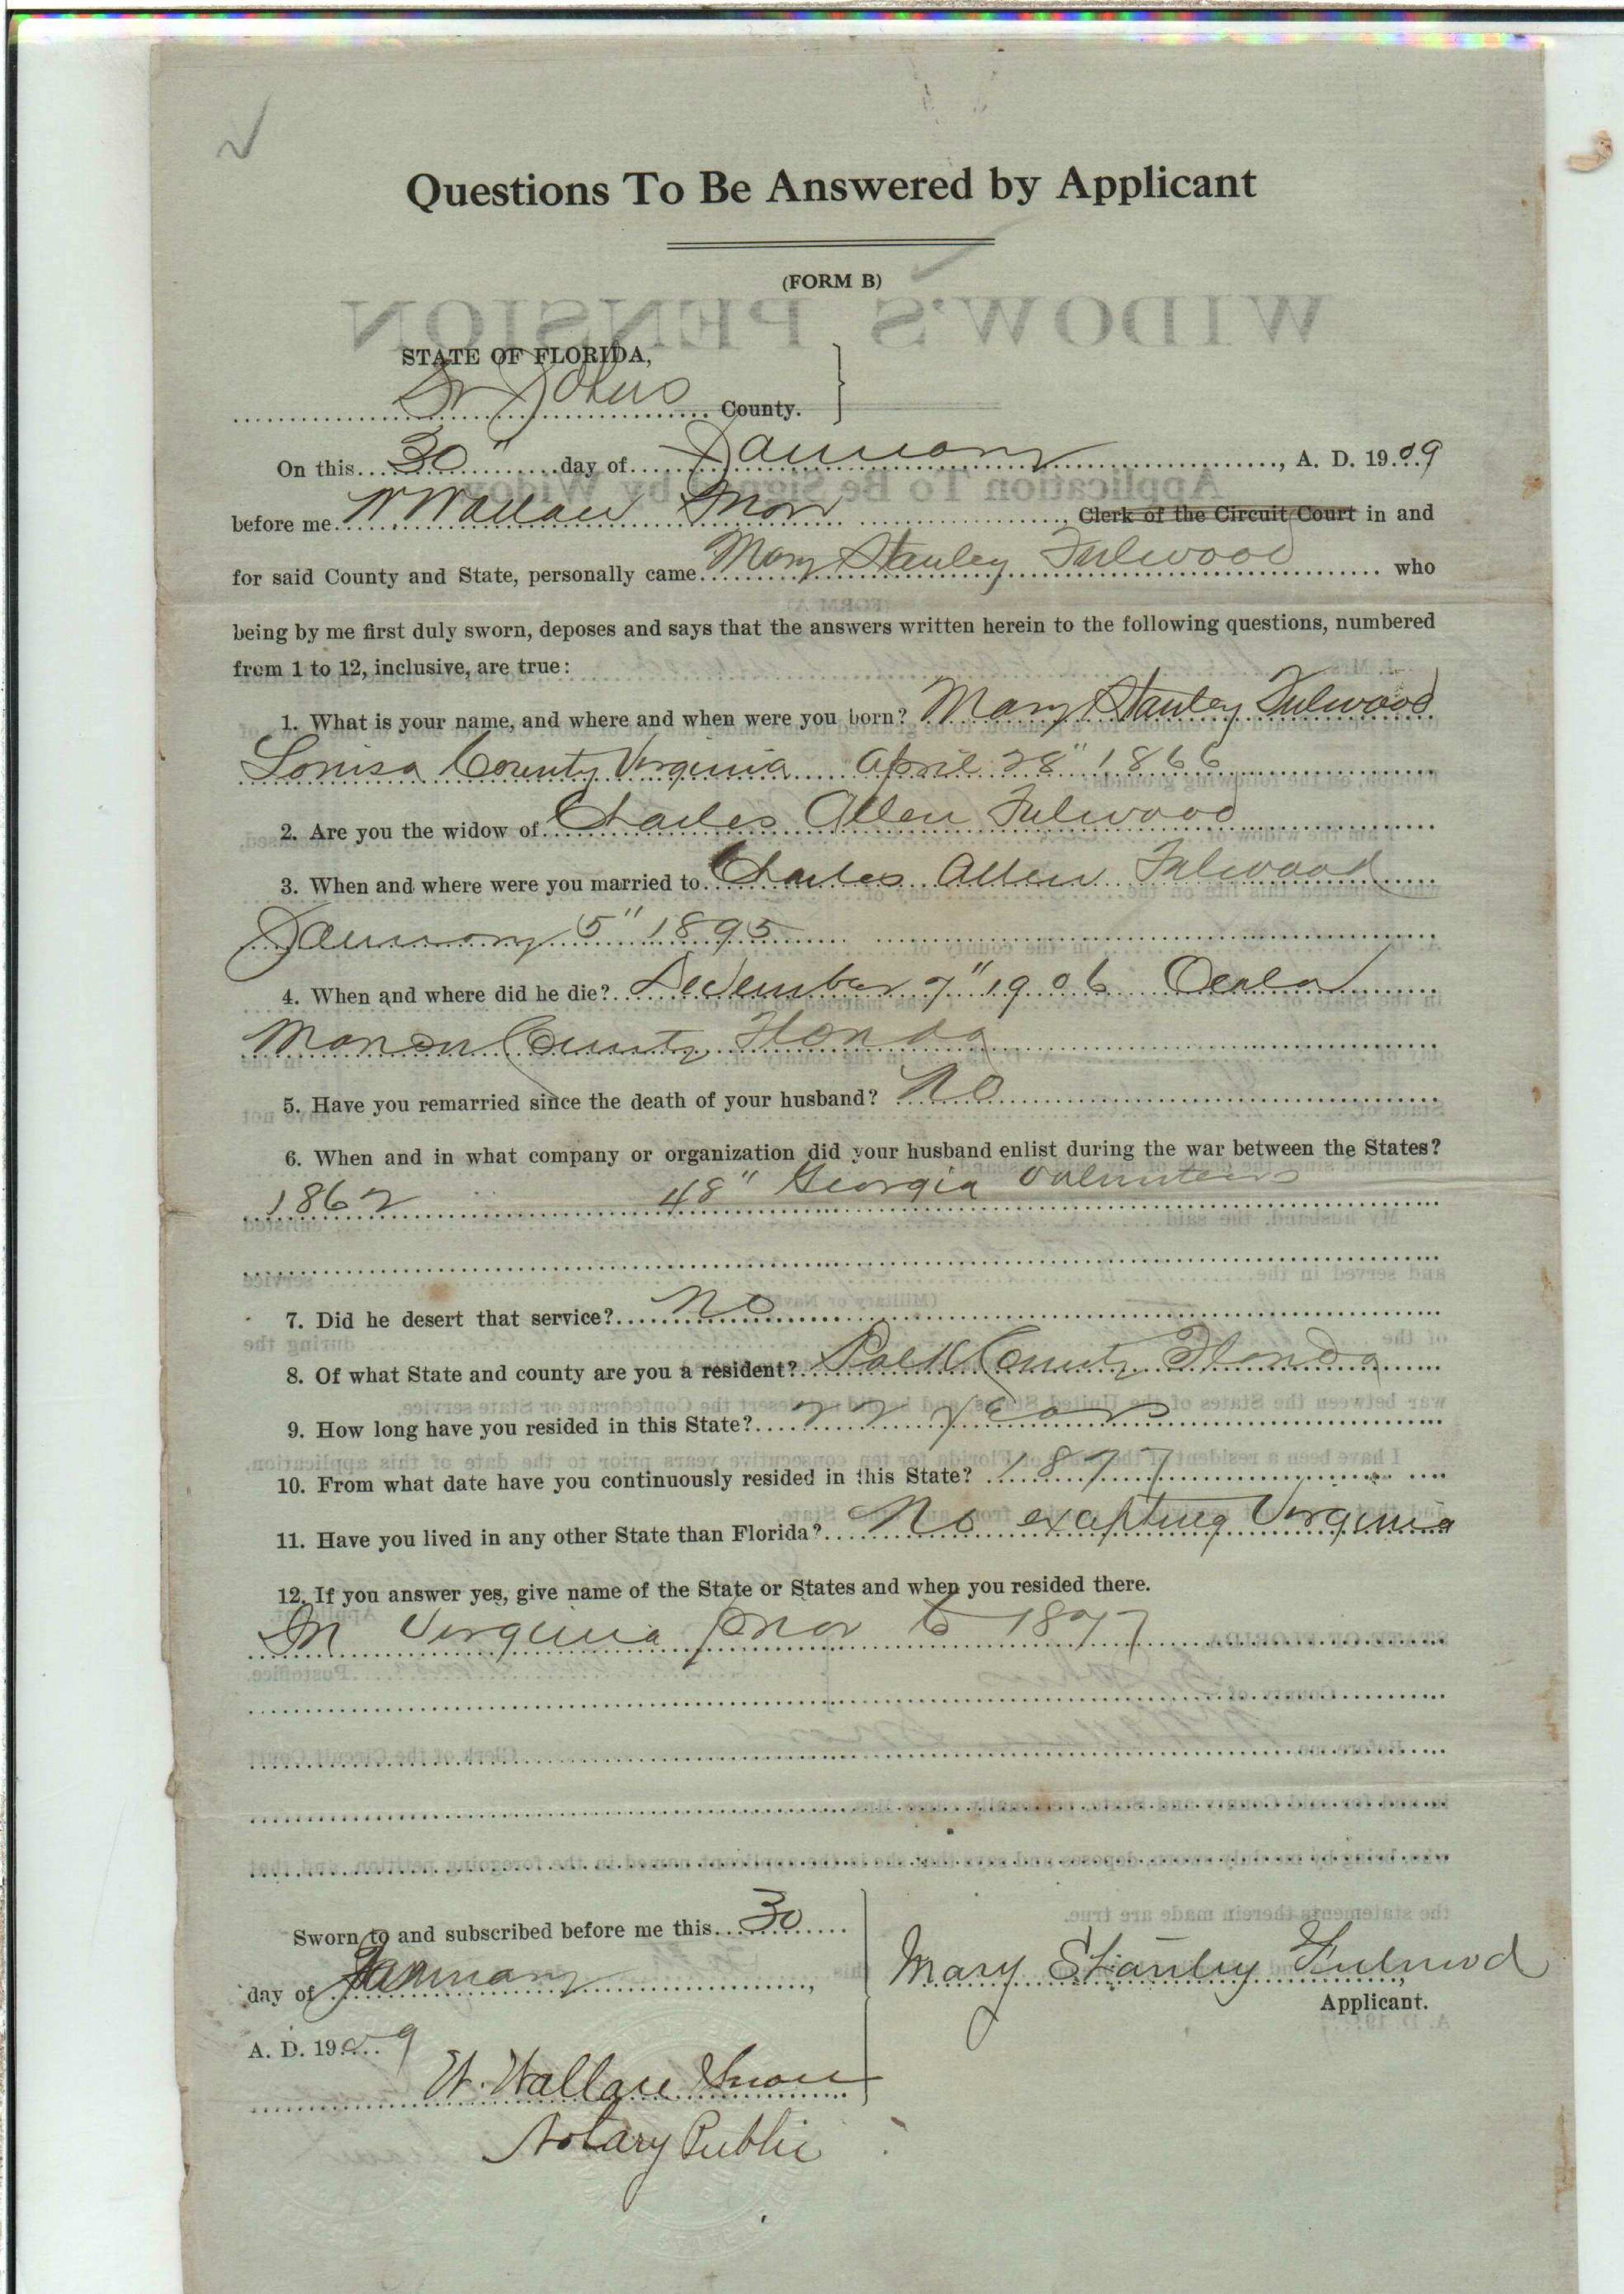 Questions To Be Answered by Applicant
(FORM B)
WIDOW'S PENSION
STATE OF FLORIDA,
St Johns County.
On this 30" day of January, A. D. 1909
before me W Wallace Snow, Clerk of the Circuit Court in and
for said County and State, personally came Mary Stanley Fulwood who
being by me first duly sworn, deposes and says that the answers written herein to the following questions, numbered
from 1 to 12, inclusive, are true:
1. What is your name, and where and when were you born? Mary Stanley Fulwood
Louisa County Virginia April 28" 1866
2. Are you the widow of Charles Allen Fulwood
3. When and where were you married to Charles Allen Fulwood
January 5" 1895
4. When and where did he die? December 7" 1906 Ocala
Marion County Florida
5. Have you remarried since the death of your husband? No
6. When and in what company or organization did your husband enlist during the war between the States?
1862 48" Georgia Volunteers
7. Did he desert that service? No
8. Of what State and county are you a resident? Polk County Florida
9. How long have you resided in this State? years
10. From what date have you continuously resided in this State? 1877
11. Have you lived in any other State than Florida? No excepting Virginia
12. If you answer yes, give name of the State or States and when you resided there.
In Virginia prior to 1877
Sworn to and subscribed before me this 30
day of January,
A. D. 1909
Mary Stanley Fulwood
Applicant.
W. Wallace Snow
Notary Public